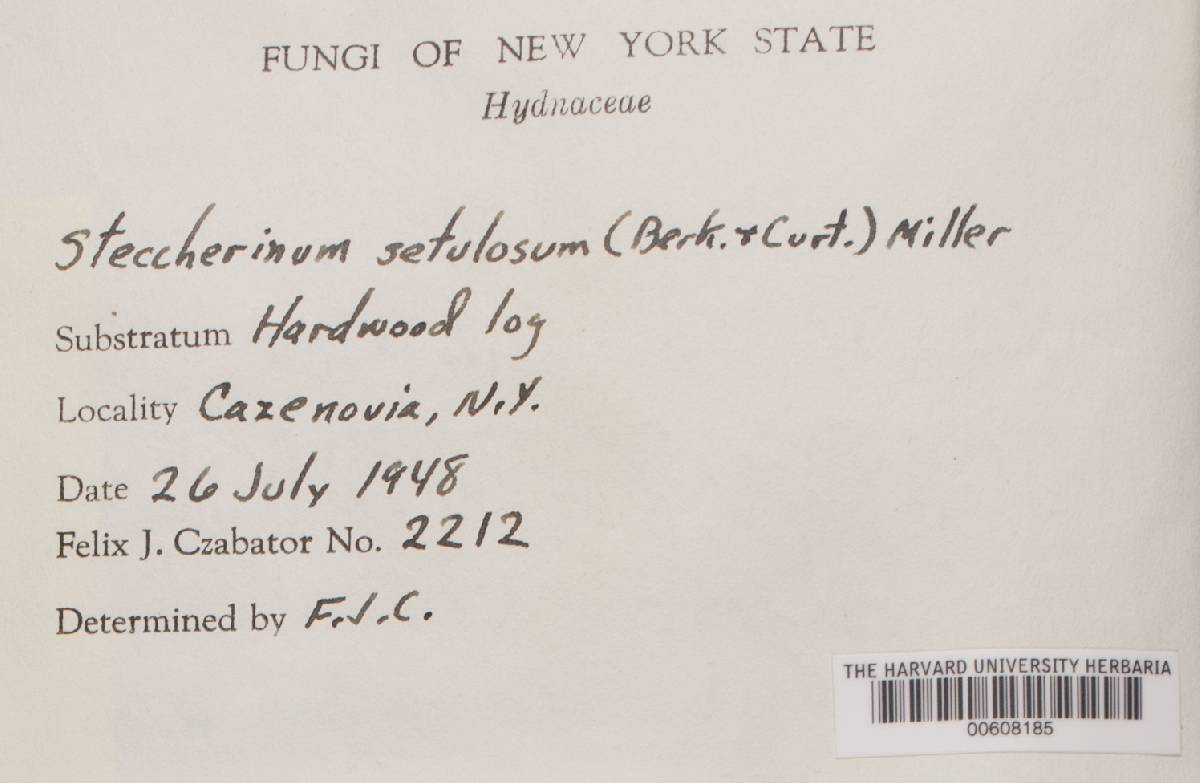 FUNGI OF NEW YORK STATE
Hydnaceae
Steccherinum setulosum (Berk. & Curt.) Miller
Substratum Hardwood log
Locality Cazenovia, N.Y.
Date 26 July 1948
Felix J. Czabator No. 2212
Determined by F.J.C.
THE HARVARD UNIVERSITY HERBARIA
00608185